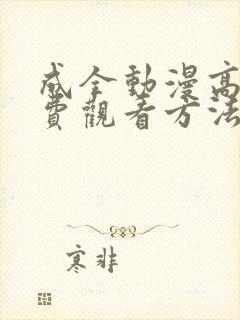 成全動漫高
費觀看方法
寒非